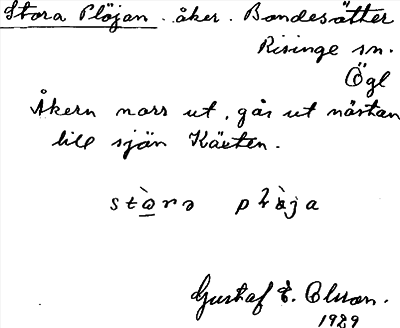 Stora Plöjan. åker. Bondesätter
Risinge sn.
Ögl
Åkern norr ut, går ut nästan
till sjön
Gustaf E. Olsson.
1929